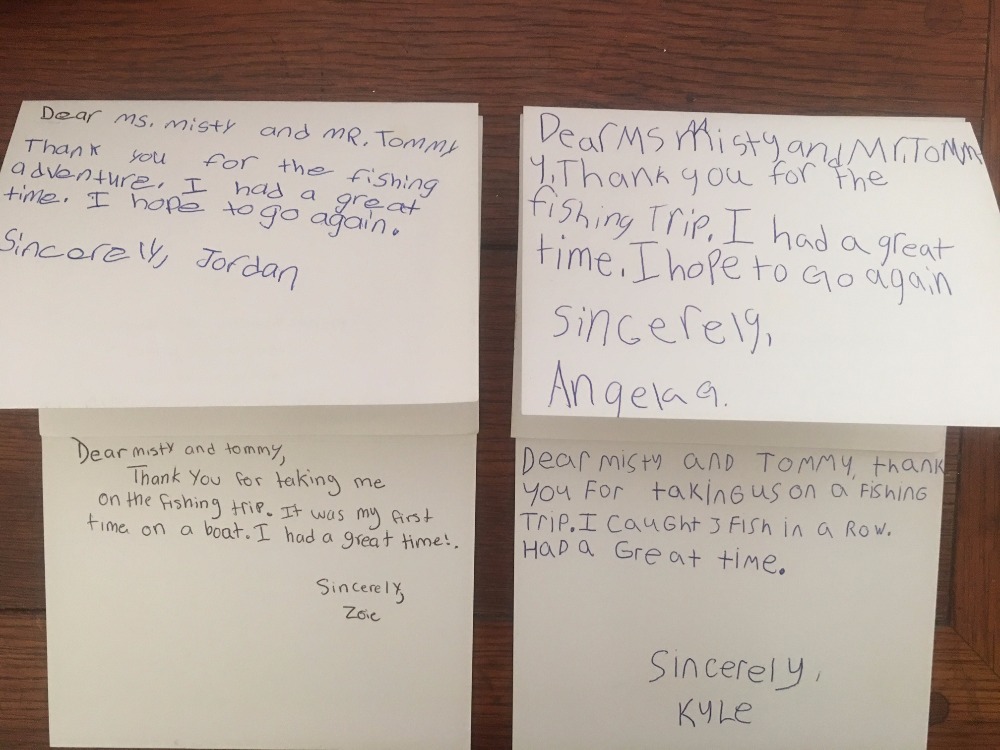 Dear Ms. Misty and MR. Tommy
Thank you for the fishing
adventure. I had a great
time. I hope to go again.
Sincerely, Jordan
Dear Ms Misty and Mr. Tomm
y, Thank you for the
fishing Trip. I had a great
time. I hope to Go again
Sincerely,
Angela G.
Dear misty and tommy,
Thank You for taking me
on the fishing trip. It was my first
time on a boat. I had a great time!.
Sincerely,
Zoie
Dear misty and Tommy, thank
you For taking us on a Fishing
Trip. I caught 3 Fish in a Row.
Had a Great time.
Sincerely,
KyLe